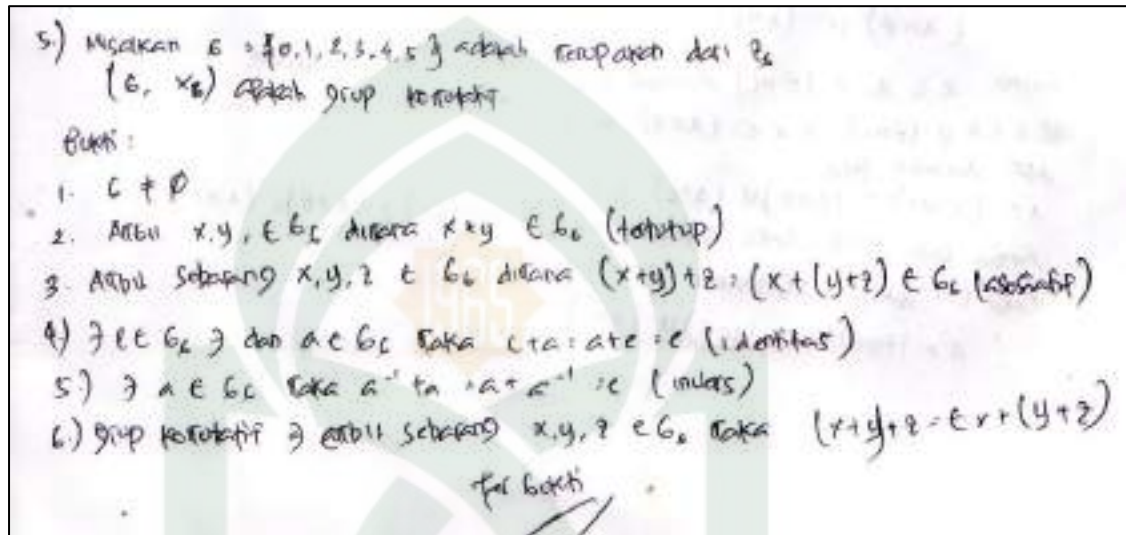 5.) Misalkan G = {0,1,2,3,4,5} adalah merupakan dari Z6
(G, x6) adalah grup komutatif
Bukti :
1. G ≠ Ø
2. Ambil x,y, ∈ G6 dimana x*y ∈ G6 (tertutup)
3. Ambil sebarang x,y,z ∈ G6 dimana (x+y)+z = (x+(y+z) ∈ G6 (asosiatif)
4) ∃ e ∈ G6 ∋ dan a ∈ G6 maka e+a = a+e = e (identitas)
5.) ∃ a ∈ G6 maka a⁻¹ + a = a + a⁻¹ = e (invers)
6.) grup komutatif ∋ ambil sebarang x,y,z ∈ G6 maka (x+y)+z = ∈ x+(y+z)
terbukti
1965